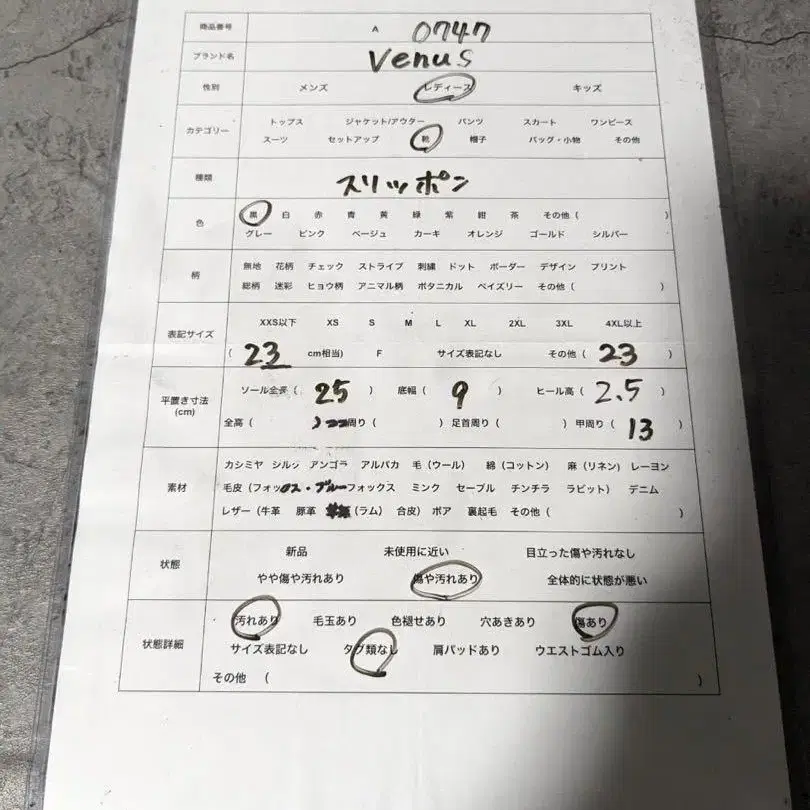 商品番号 A 0747
ブランド名 Venus
性別 メンズ レディース キッズ
カテゴリー トップス ジャケット/アウター パンツ スカート ワンピース
スーツ セットアップ 靴 帽子 バッグ・小物 その他
種類 スリッポン
色 黒 白 赤 青 黄 緑 紫 紺 茶 その他 ( )
グレー ピンク ベージュ カーキ オレンジ ゴールド シルバー
柄 無地 花柄 チェック ストライプ 刺繍 ドット ボーダー デザイン プリント
総柄 迷彩 ヒョウ柄 アニマル柄 ボタニカル ペイズリー その他 ( )
表記サイズ XXS以下 XS S M L XL 2XL 3XL 4XL以上
( 23 cm相当) F サイズ表記なし その他 ( 23 )
平置き寸法 (cm) ソール全長 ( 25 ) 底幅 ( 9 ) ヒール高 ( 2.5 )
全高 ( ) 周り ( ) 足首周り ( ) 甲周り ( 13 )
素材 カシミヤ シルク アンゴラ アルパカ 毛 (ウール) 綿 (コットン) 麻 (リネン) レーヨン
毛皮 (フォックス・ブルーフォックス ミンク セーブル チンチラ ラビット) デニム
レザー (牛革 豚革 (ラム) 合皮) ボア 裏起毛 その他 ( )
状態 新品 未使用に近い 目立った傷や汚れなし
やや傷や汚れあり 傷や汚れあり 全体的に状態が悪い
状態詳細 汚れあり 毛玉あり 色褪せあり 穴あきあり 傷あり
サイズ表記なし タグ類なし 肩パッドあり ウエストゴム入り
その他 ( )